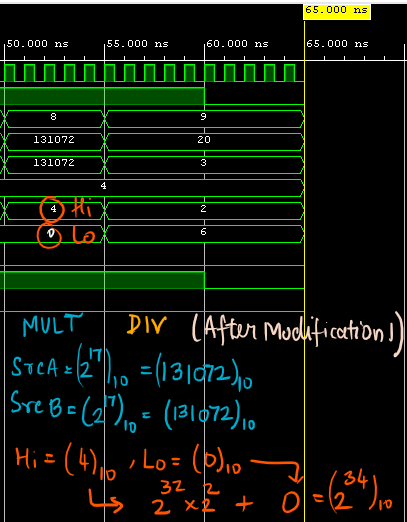 65.000 ns
50.000 ns 55.000 ns 60.000 ns 65.000 ns
8 9
131072 20
131072 3
4
4 Hi 2
0 Lo 6
MULT DIV (After Modification 1)
SrcA = (2^17)_10 = (131072)_10
SrcB = (2^17)_10 = (131072)_10
Hi = (4)_10 , Lo = (0)_10
↳ 2^32 × 2^2 + 0 = (2^34)_10